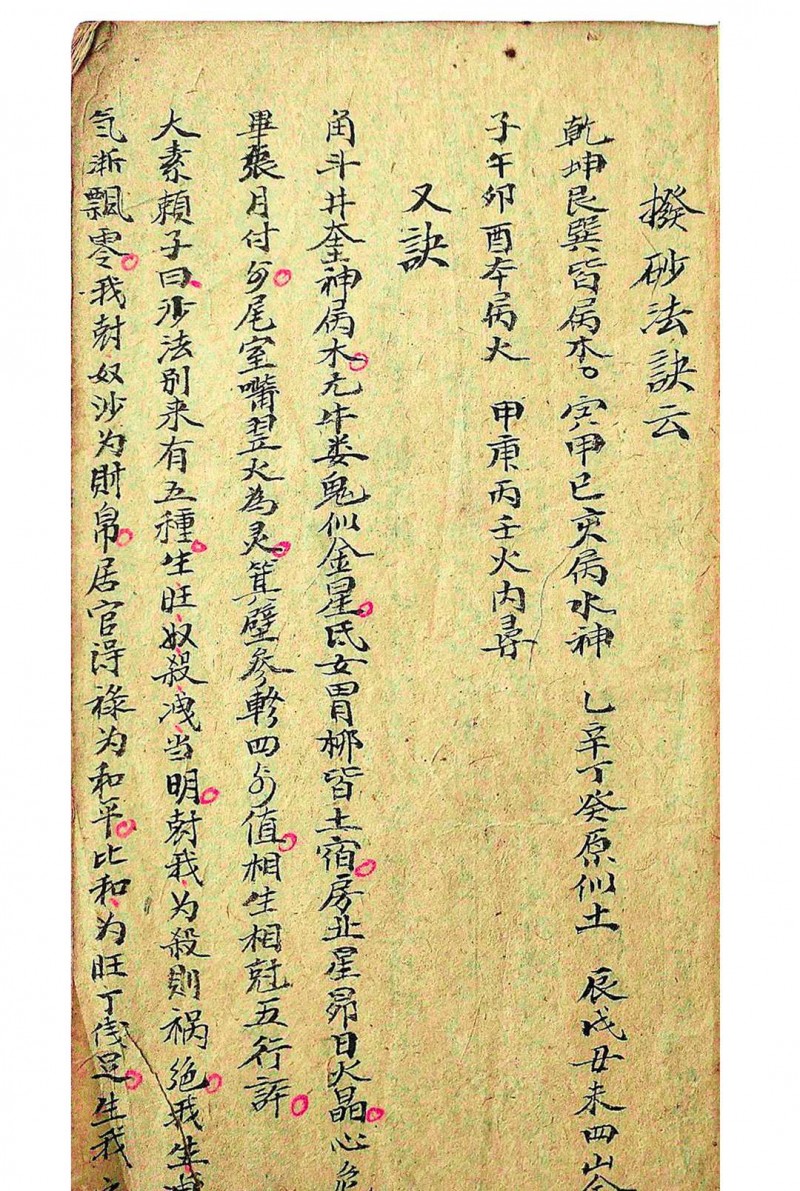 撥砂法訣云
乾坤艮巽皆属木 寅甲巳亥病水神 乙辛丁癸原似土 辰戌丑未四山金
子午卯酉本属火 甲庚丙壬火内尋
又訣
角斗井奎神属木 亢牛娄鬼似金星 氐女胃柳皆土宿 房虚星昴日火晶 心危
畢張月付 尾室嘴翌火為灵 箕壁参軫四 值 相生相尅五行訴
大素頼子曰 沙法别来有五種 生旺奴殺洩当明 尅我为殺則禍绝 我生洩
気漸飄零 我尅奴沙为財帛 居官得禄为和平 比和为旺丁伐足 生我